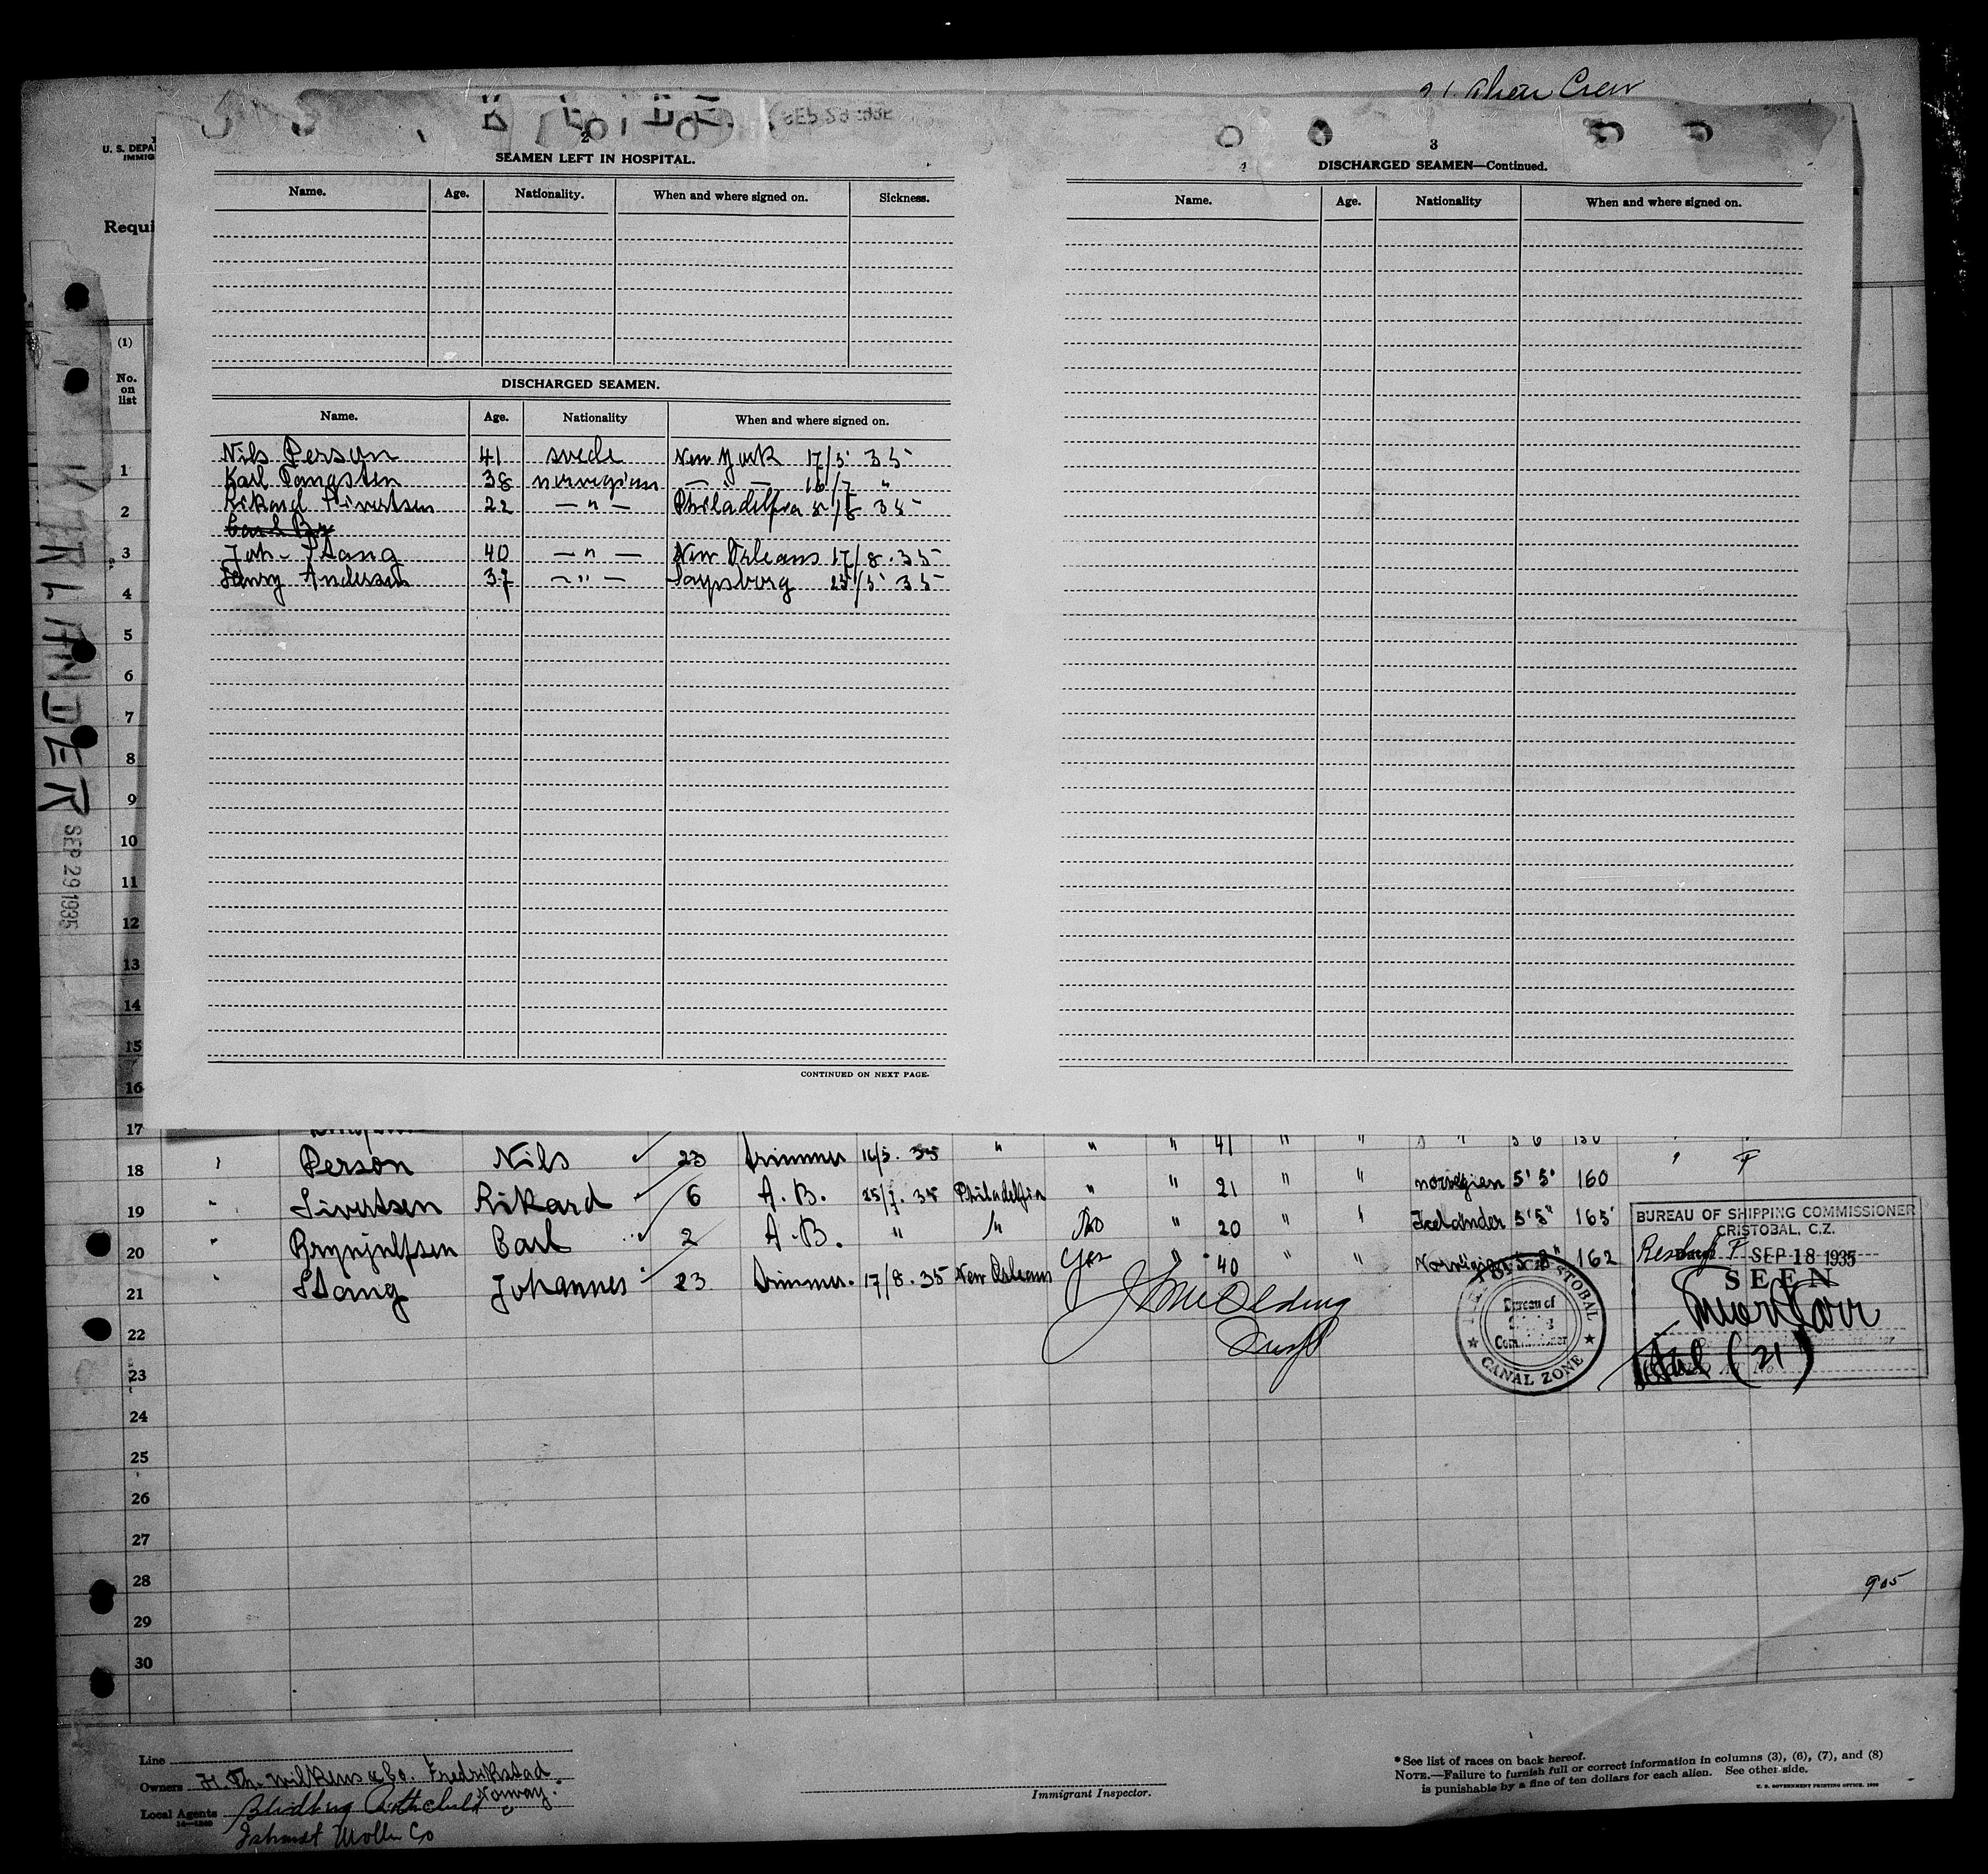 21 Alien Crew
U. S. DEPA
IMMIG
SEP 29 1935
2
SEAMEN LEFT IN HOSPITAL.
Name. Age. Nationality. When and where signed on. Sickness.
DISCHARGED SEAMEN.
Name. Age. Nationality When and where signed on.
Nils Person 41 svede New York 17/5 35
Karl Tangsten 38 norvegian — " — 16/7 "
Rikard Sivertsen 22 — " — Philadelfia 35
Carl By
Joh. Stang 40 — " — New Orleans 17/8. 35
Henry Anderson 37 — " — Sarpsborg 23/5 35
CONTINUED ON NEXT PAGE.
3
DISCHARGED SEAMEN—Continued.
Name. Age. Nationality When and where signed on.
Requi
(1)
No.
on
list
KARLANDER
SEP 29 1935
1
2
3
4
5
6
7
8
9
10
11
12
13
14
15
16
17 " " " 41 " "
18 Person Nils 23 Trimmer 16/5. 35 " " "
19 " Sivertsen Rikard 6 A. B. 25/7. 35 Philadelfia " " 21 " " norvegian 5' 5" 160
20 " Brynjulfsen Carl 2 A. B. " " No " 20 " " Icelander 5'5" 165
21 " Stang Johannes 23 Trimmer. 17/8. 35 New Orleans Yes " 40 " " Norvegian 5 8" 162
22
23
24
25
26
27
28
29
30
BUREAU OF SHIPPING COMMISSIONER
CRISTOBAL, C.Z.
SEP 18 1935
SEEN
(21)
CRISTOBAL
Bureau of
Shipping
Commissioner
CANAL ZONE
905
Line
Owners H. Th. Wilkens & Co. Fredrikstad
Norway.
Local Agents
Co
Immigrant Inspector.
*See list of races on back hereof.
NOTE.—Failure to furnish full or correct information in columns (3), (6), (7), and (8)
is punishable by a fine of ten dollars for each alien. See other side.
U. S. GOVERNMENT PRINTING OFFICE